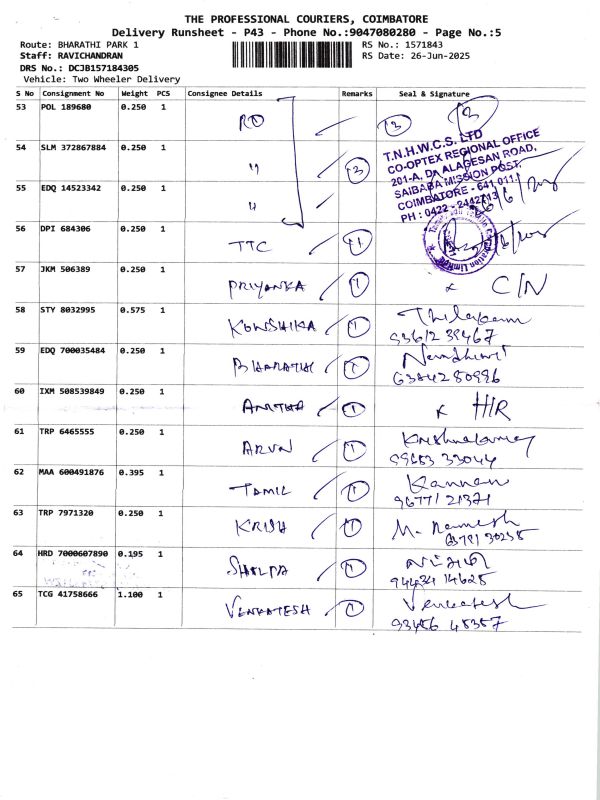 THE PROFESSIONAL COURIERS, COIMBATORE
Delivery Runsheet - P43 - Phone No.:9047080280 - Page No.:5
Route: BHARATHI PARK 1 RS No.: 1571843
Staff: RAVICHANDRAN RS Date: 26-Jun-2025
DRS No.: DCJB157184305
Vehicle: Two Wheeler Delivery
S No Consignment No Weight PCS Consignee Details Remarks Seal & Signature
53 POL 189680 0.250 1 RO 3 3
54 SLM 372867884 0.250 1 " 3
T.N.H.W.C.S. LTD
CO-OPTEX REGIONAL OFFICE
201-A, Dr. ALAGESAN ROAD,
SAIBABA MISSION POST,
COIMBATORE - 641 011.
PH : 0422 - 2442713
55 EDQ 14523342 0.250 1 "
56 DPI 684306 0.250 1 TTC 1
57 JKM 506389 0.250 1 PRIYANKA 1 x C/N
58 STY 8032995 0.575 1 KOWSHIKA 1
93612 39467
59 EDQ 700035484 0.250 1 BHARATHI 1
6384280996
60 IXM 508539849 0.250 1 AMTHA 1 x H/R
61 TRP 6465555 0.250 1 ARUN 1
99653 33044
62 MAA 600491876 0.395 1 TAMIL 1 Kannan
96771 21371
63 TRP 7971320 0.250 1 KRISH 1 M. Ramesh
64 HRD 7000607890 0.195 1 SHILPA 1
94434 14628
65 TCG 41758666 1.100 1 VENKATESH 1 Venkatesh
93456 45357